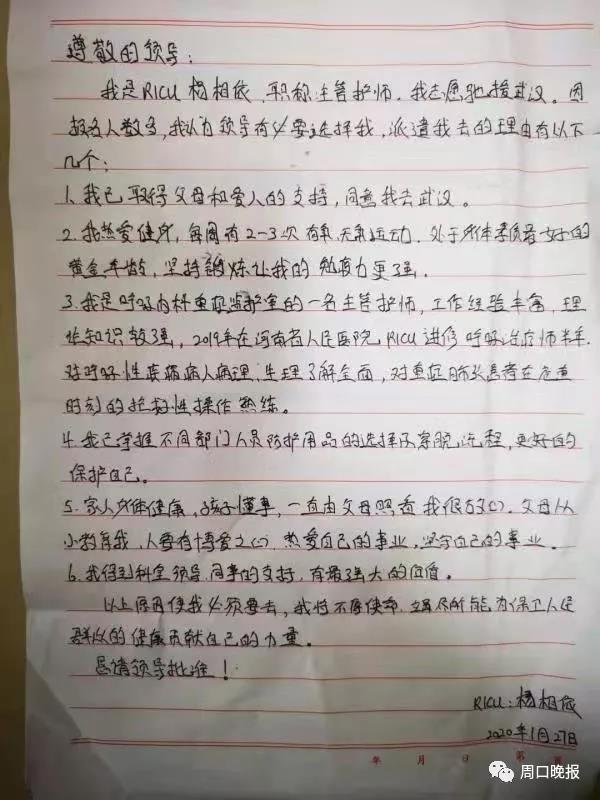 尊敬的领导:
我是RICU 杨相依,职称主管护师,我志愿驰援武汉。因
报名人数多,我认为领导有必要选择我,派遣我去的理由有以下
几个:
1、我已取得父母和爱人的支持,同意我去武汉。
2、我热爱健身,每周有2-3次有氧、无氧运动,处于身体素质最好的
黄金年龄,坚持锻炼让我的免疫力更强。
3、我是呼吸内科重症监护室的一名主管护师,工作经验丰富,理
论知识较强,2019年在河南省人民医院RICU进修呼吸治疗师半年.
对呼吸性疾病病人病理、生理了解全面,对重症肺炎患者在危重
时刻的护理性操作熟练。
4、我已掌握不同部门人员防护用品的选择及穿脱流程,更好的
保护自己。
5、家人身体健康,孩子懂事,一直由父母照看我很放心。父母从
小教育我,人要有博爱之心,热爱自己的事业,坚守自己的事业。
6、我得到科室领导、同事的支持,有最强大的后盾。
以上原因使我必须要去,我将不辱使命,竭尽所能为保卫人民
群众的健康贡献自己的力量。
恳请领导批准!
RICU:杨相依
2020年1月27日
年 月 日 第 页
周口晚报